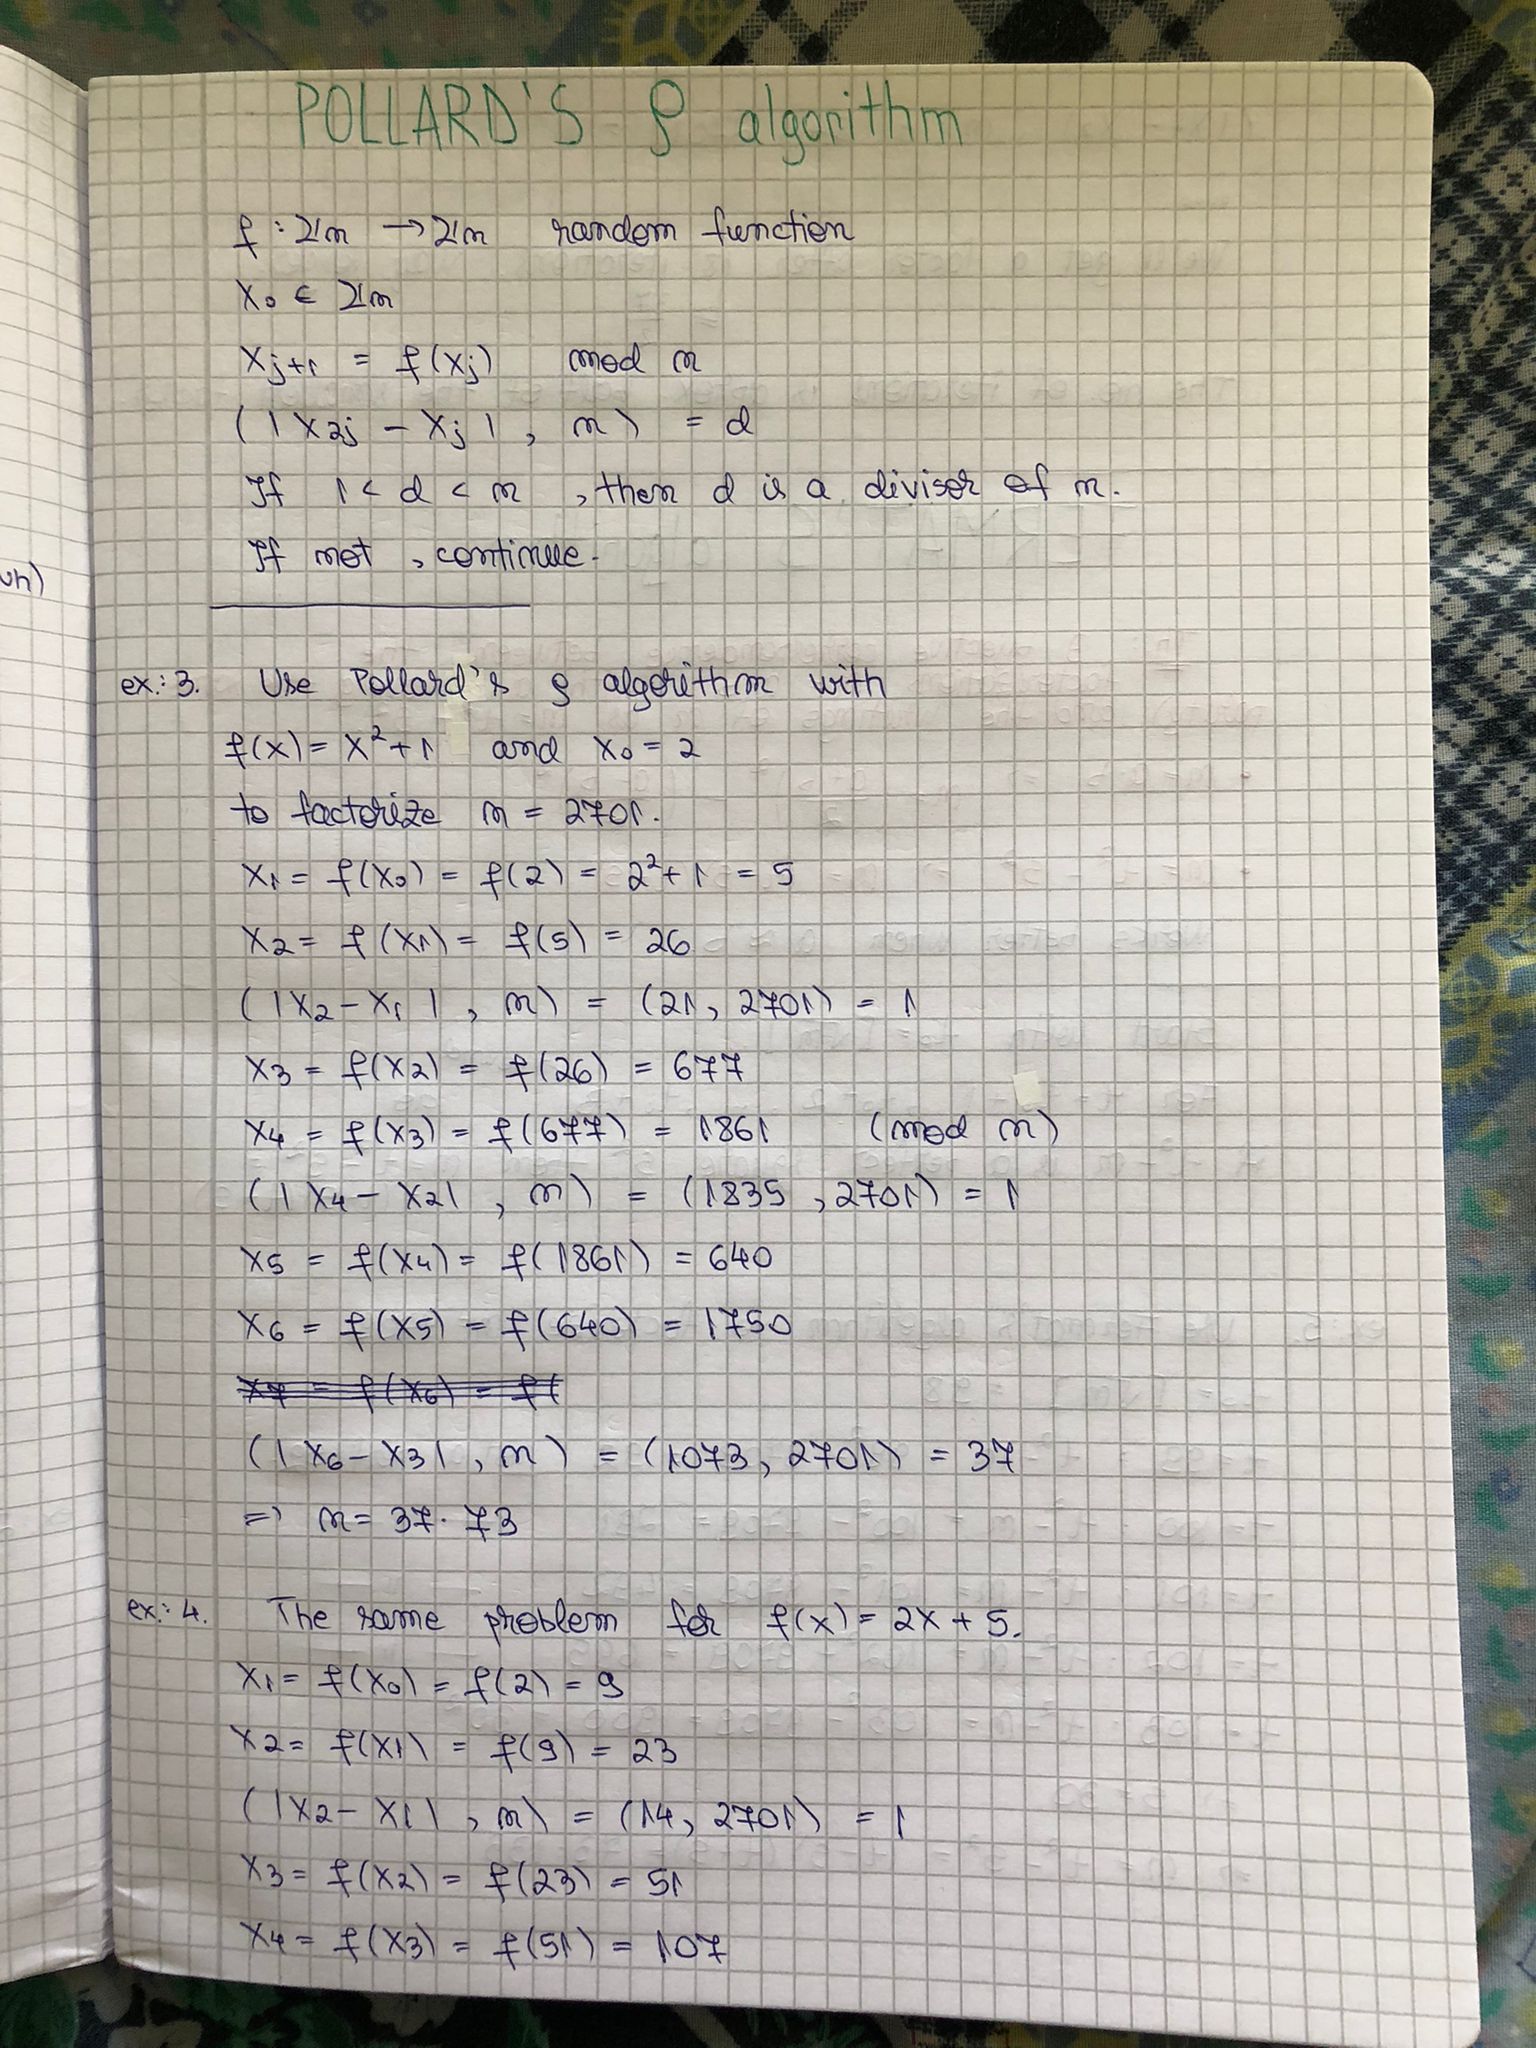 POLLARD'S ρ algorithm
f : ℤn → ℤn random function
x₀ ∈ ℤn
xj+1 = f(xj) mod n
(|x2j - xj|, n) = d
If 1 < d < n, then d is a divisor of n.
If not, continue.
un)
ex.: 3. Use Pollard's ρ algorithm with
f(x) = x² + 1 and x₀ = 2
to factorize n = 2701.
x₁ = f(x₀) = f(2) = 2² + 1 = 5
x₂ = f(x₁) = f(5) = 26
(|x₂ - x₁|, n) = (21, 2701) = 1
x₃ = f(x₂) = f(26) = 677
x₄ = f(x₃) = f(677) = 1861 (mod n)
(|x₄ - x₂|, n) = (1835, 2701) = 1
x₅ = f(x₄) = f(1861) = 640
x₆ = f(x₅) = f(640) = 1750
x₇ = f(x₆) = f(
(|x₆ - x₃|, n) = (1073, 2701) = 37
=> n = 37 · 73
ex.: 4. The same problem for f(x) = 2x + 5.
x₁ = f(x₀) = f(2) = 9
x₂ = f(x₁) = f(9) = 23
(|x₂ - x₁|, n) = (14, 2701) = 1
x₃ = f(x₂) = f(23) = 51
x₄ = f(x₃) = f(51) = 107